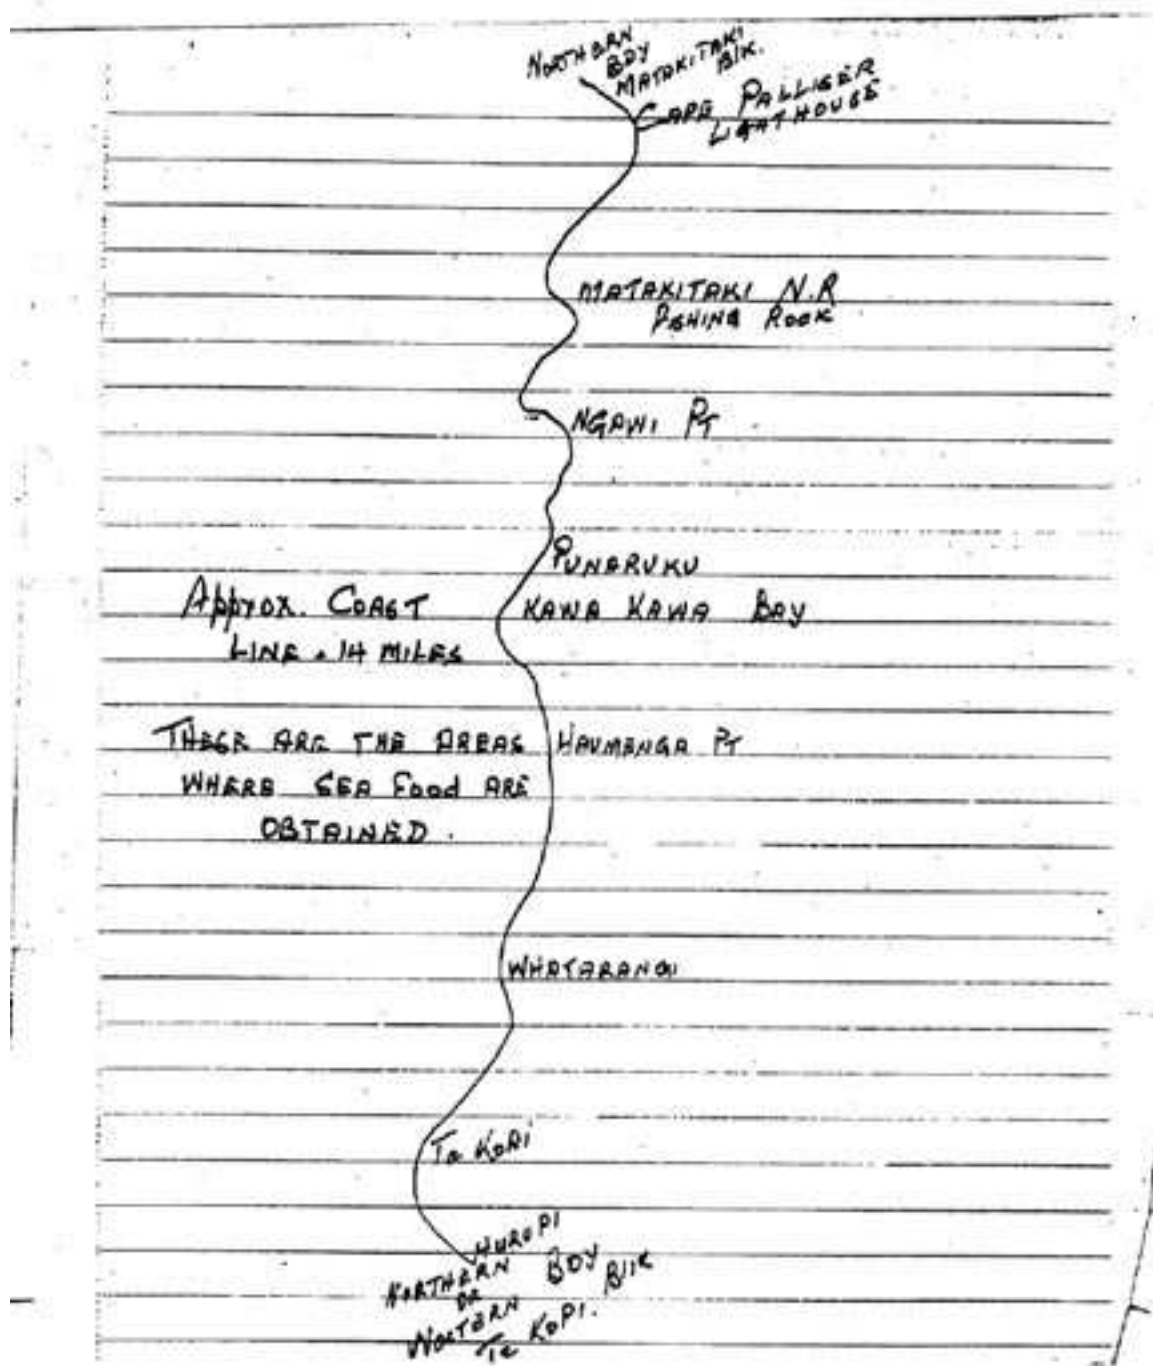 NORTHERN
BDY
MATAKITAKI
BlK.
CAPE PALLISER
LIGHTHOUSE
MATAKITAKI N.R
FISHING ROCK
NGAWI PT
PUNARUKU
KAWA KAWA BAY
Approx. COAST
LINE. 14 MILES
THESE ARE THE AREAS
WHERE SEA Food ARE
OBTAINED.
HAUMANGA PT
WHATARANGI
Te KOPI
HURUPI
NORTHERN BDY
OR
WESTERN BlK
Te KOPI.